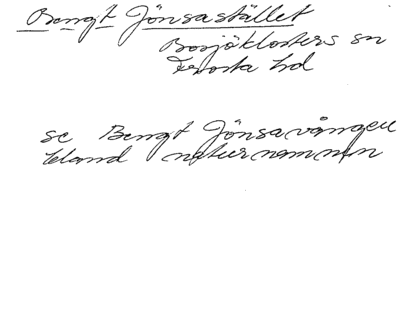 Bengt Jönsastället
Bosjöklosters sn
Frosta hd
se Bengt Jönsavången
bland naturnamnen